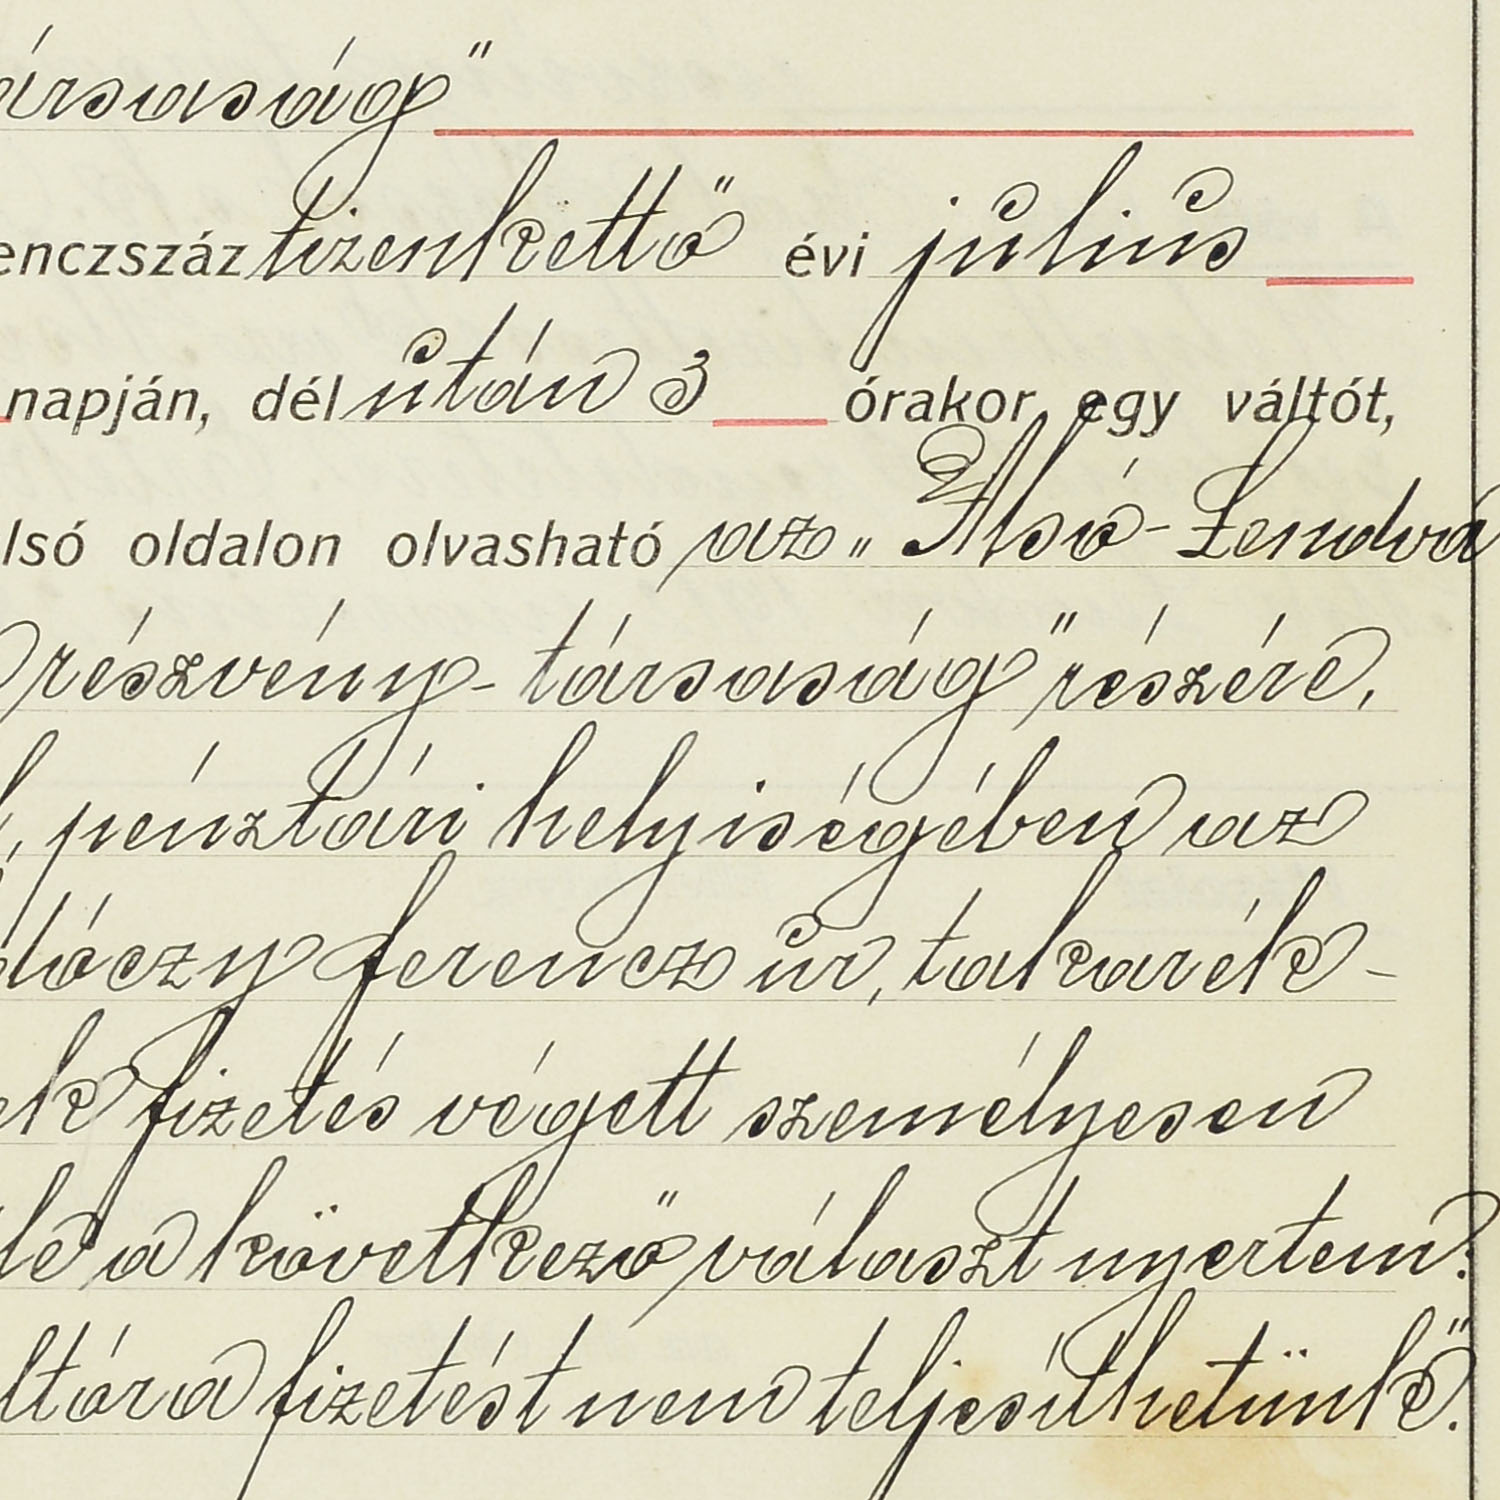 ársaság"
enczszáz tizenkettő évi július
napján, dél után 3 órakor egy váltót,
lsó oldalon olvasható az „Alsó-Lendva
részvény-társaság" részére,
, pénztári helyiségében az
lóczy Ferencz úr, takarék-
ek fizetés végett személyesen
le a következő választ nyertem:
ltóra fizetést nem teljesíthetünk".